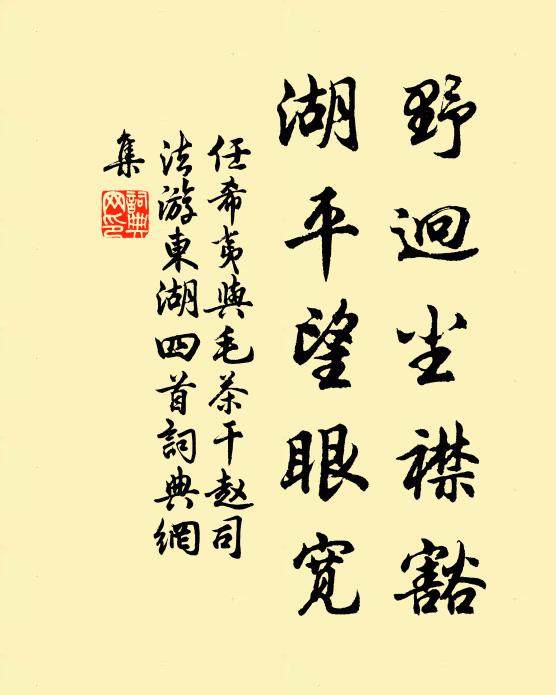 野迥尘襟豁
湖平望眼宽
任希夷與毛茶干赵司
法游東湖四首詞典網
集
詞典网印